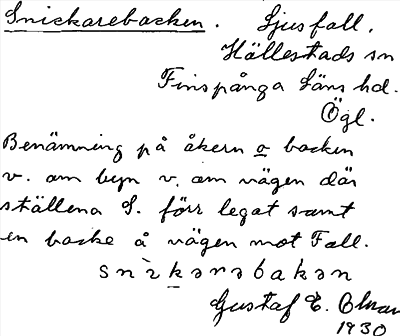 Snickarebacken. Ljusfall,
Hällestads sn
Finspånga läns hd.
Ögl.
Benämning på åkern o backen
v. om byn v. om vägen där
ställena S. förr legat samt
en backe å vägen mot Fall.
Gustaf E.
1930